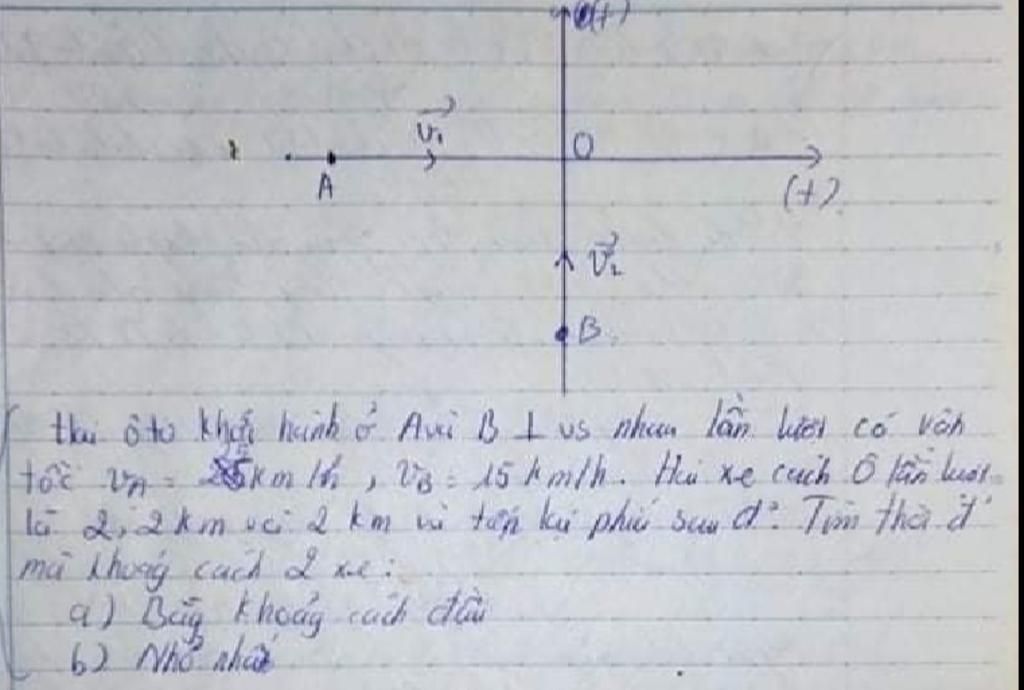 (+)
v₁
O
A
(+)
v₂
B
Hai ôtô khởi hành ở A và B ⊥ vs nhau lần lượt có vận
tốc v_A = km/h, v_B = 15 km/h. Hai xe cách O lần lượt
là 2,2 km và 2 km và tiến lại phía sau đó. Tìm thời đ'
mà khoảng cách 2 xe:
a) Bằg khoảg cách đầu
b) Nhỏ nhất